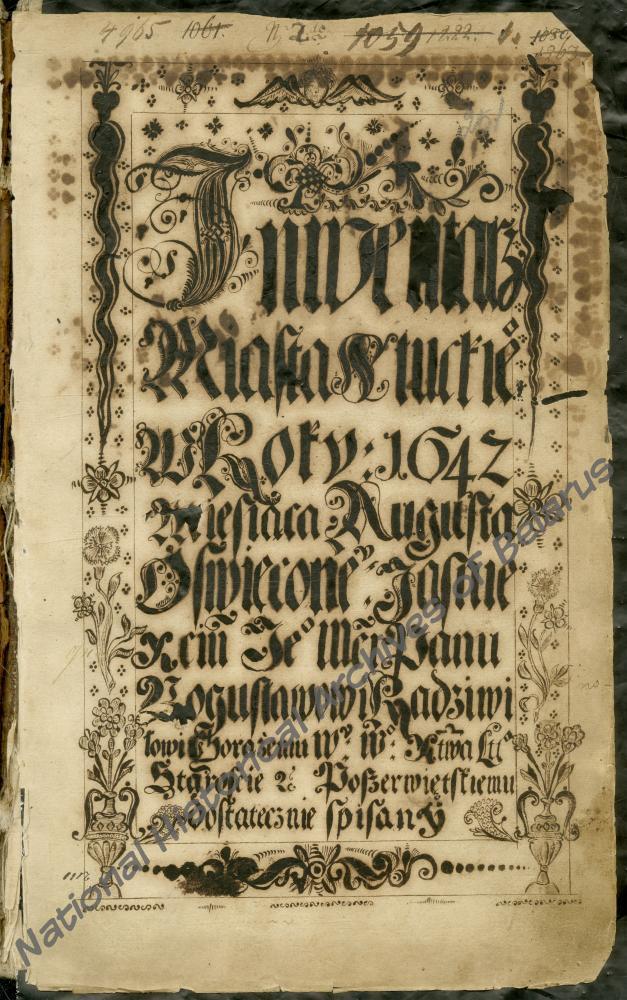 4965 1061. N 2 1059 1222. 1. 1080
Inwentarz
Miasta Słuckieº
W Roku: 1642
Miesiąca Augusta
Oświęconeº Jasnie
Xcm Jeº Mći Panu
Bogusławowi Radziwi
łowi Chorążemu Wº Wº Xtwa Litº
Staroście &c Poszerwiętskiemu
dostatecznie spisany
National Historical Archives of Belarus